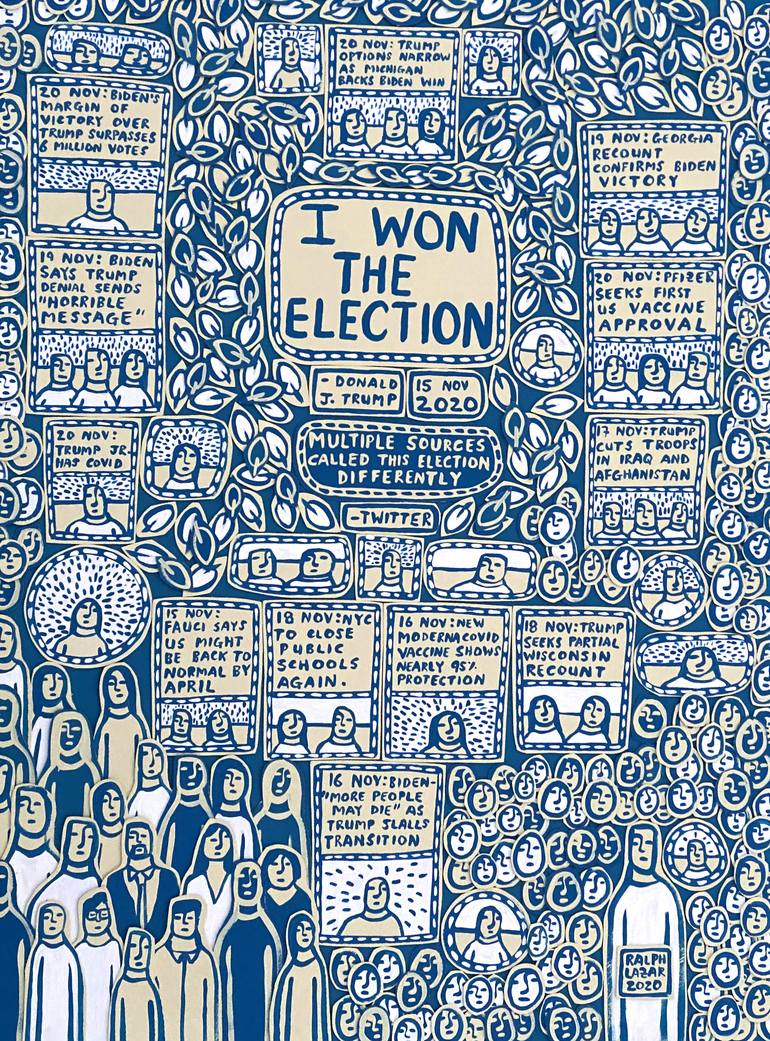 20 NOV: TRUMP
OPTIONS NARROW
AS MICHIGAN
BACKS BIDEN WIN
20 NOV: BIDEN'S
MARGIN OF
VICTORY OVER
TRUMP SURPASSES
6 MILLION VOTES
19 NOV: GEORGIA
RECOUNT
CONFIRMS BIDEN
VICTORY
I WON
THE
ELECTION
19 NOV: BIDEN
SAYS TRUMP
DENIAL SENDS
"HORRIBLE
MESSAGE"
20 NOV: PFIZER
SEEKS FIRST
US VACCINE
APPROVAL
- DONALD
J. TRUMP
15 NOV
2020
20 NOV:
TRUMP JR.
HAS COVID
MULTIPLE SOURCES
CALLED THIS ELECTION
DIFFERENTLY
17 NOV: TRUMP
CUTS TROOPS
IN IRAQ AND
AFGHANISTAN
-TWITTER
15 NOV:
FAUCI SAYS
US MIGHT
BE BACK TO
NORMAL BY
APRIL
18 NOV: NYC
TO CLOSE
PUBLIC
SCHOOLS
AGAIN.
16 NOV: NEW
MODERNA COVID
VACCINE SHOWS
NEARLY 95%
PROTECTION
18 NOV: TRUMP
SEEKS PARTIAL
WISCONSIN
RECOUNT
16 NOV: BIDEN-
"MORE PEOPLE
MAY DIE" AS
TRUMP SLALLS
TRANSITION
RALPH
LAZAR
2020